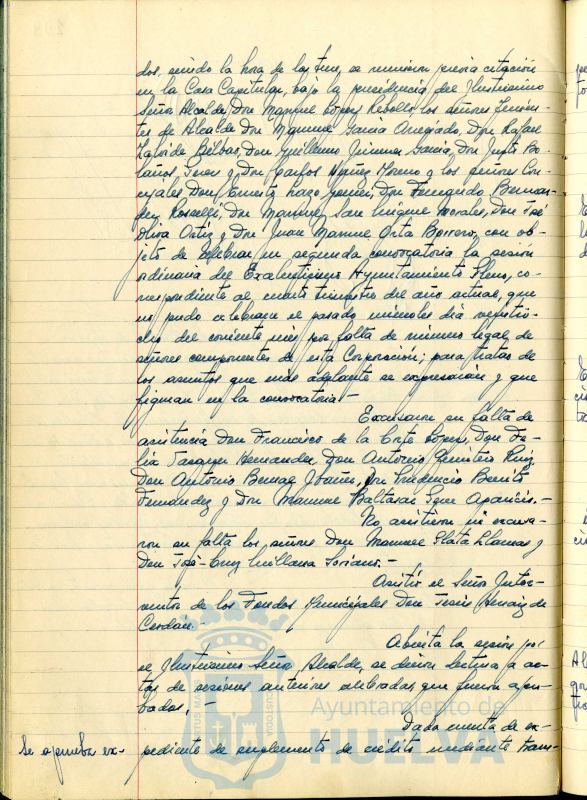 dos, siendo la hora de las   , se reunieron previa citación
en la Casa Capitular, bajo la presidencia del Ilustrísimo
Señor Alcalde, Don Manuel López Rebollo, los señores Tenien-
tes de Alcalde Don Manuel García   , Don Rafael
   de Bilbao, Don Guillermo Jimenez García, Don Justo Bo-
laños    y Don Carlos Núñez Moreno y los señores Con-
cejales Don Ernesto Lazo   , Don Fernando Bermu-
dez Rosselli, Don Manuel San Miguel Morales, Don José
Oliva Ortiz y Don Juan Manuel Orta Borrero, con ob-
jeto de celebrar en segunda convocatoria la sesión
ordinaria del Excelentísimo Ayuntamiento Pleno, co-
rrespondiente al cuarto trimestre del año actual, que
no pudo celebrarse el pasado miercoles dia veintio-
cho del corriente mes por falta de número legal de
señores componentes de esta Corporación; para tratar de
los asuntos que más adelante se expresarán y que
figuran en la convocatoria.-
Excusaron su falta de
asistencia Don Francisco de la Corte López, Don Fe-
lix    Hernandez, Don Antonio Quintero Ruiz,
Don Antonio    Ibañez, Don Prudencio Benito
Fernandez y Don Manuel Baltasar    Aparicio.-
No asistieron ni excusa-
ron su falta los señores Don Manuel Plata Llamas y
Don José-Cruz    Soriano.-
Asistió el Señor Inter-
ventor de los Fondos Municipales Don Jesús    de
Cerdán.-
Abierta la sesión por
el Ilustrísimo Señor Alcalde, se dieron lectura a ac-
tas de sesiones anteriores celebradas que fueron apro-
badas.-
Dada cuenta de ex-
Se aprueba ex-
pediente de suplemento de crédito mediante tran-
Ayuntamiento de
HUELVA